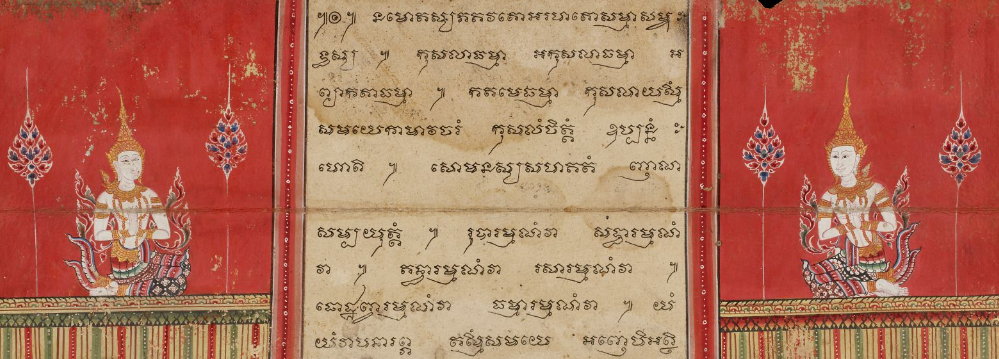 ៕๏៕ នមោតស្សភគវតោអរហាតោសម្មាសម្ពុ
ទ្ធស្ស ៕ កុសលាធម្មា អកុសលាធម្មា អ
ព្យាកតាធម្មា ៕ កតមេធម្មា កុសលាយស្មឹ
សមយេកាមាវចរំ កុសលំចិត្តំ ឧប្បន្នំ
ហោតិ ៕ សោមនស្សសហគតំ ញាណ
សម្បយុត្តំ ៕ រុបារម្មណំវា សទ្ទារម្មណំ
វា ៕ គន្ធារម្មណំវា រសារម្មណំវា ៕
ផោដ្ឋព្វារម្មណំវា ធម្មារម្មណំវា ៕ យំ
យំវាបនារព្ភ តស្មឹសមយេ អញ្ញេបិអត្ថិ